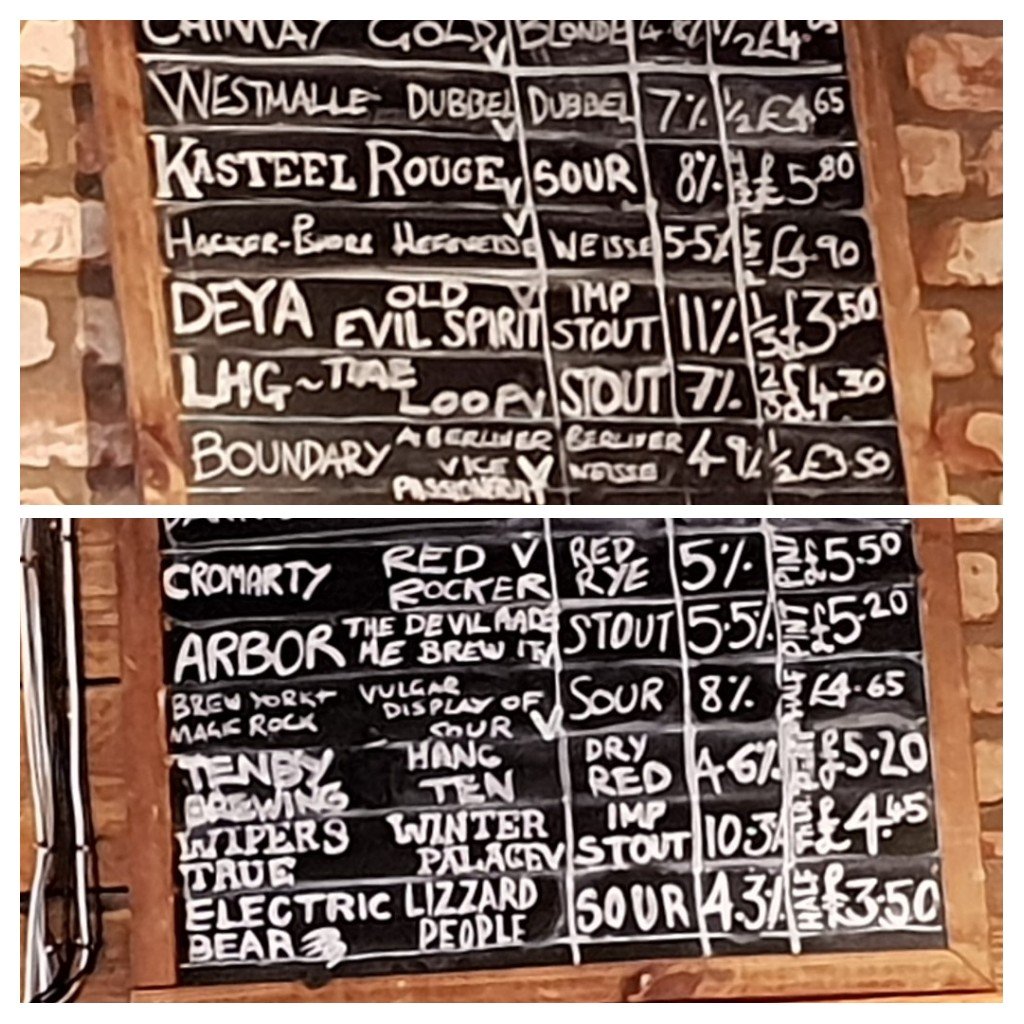 CHIMAY GOLD BLONDE 4.8% 1/2 £4.
WESTMALLE DUBBEL V DUBBEL 7% 1/2 £4.65
KASTEEL ROUGE V SOUR 8% £5.80
HACKER-PSCHORR HEFEWEISSE V WEISSE 5.5% PINT £4.90
DEYA OLD EVIL SPIRIT V IMP STOUT 11% 1/3 £3.50
LHG~TIME LOOP V STOUT 7% 2/3 £4.30
BOUNDARY A BERLINER VICE PASSIONFRUIT V BERLINER WEISSE 4% 1/2 £3.50
CROMARTY RED ROCKER V RED RYE 5% PINT £5.50
ARBOR THE DEVIL MADE ME BREW IT V STOUT 5.5% PINT £5.20
BREW YORK + MAGIC ROCK VULGAR DISPLAY OF SOUR V SOUR 8% HALF £4.65
TENBY BREWING HANG TEN DRY RED 4.6% PINT £5.20
WIPERS TRUE WINTER PALACE V IMP STOUT 10.3% £4.45
ELECTRIC BEAR LIZZARD PEOPLE SOUR 4.3% HALF £3.50